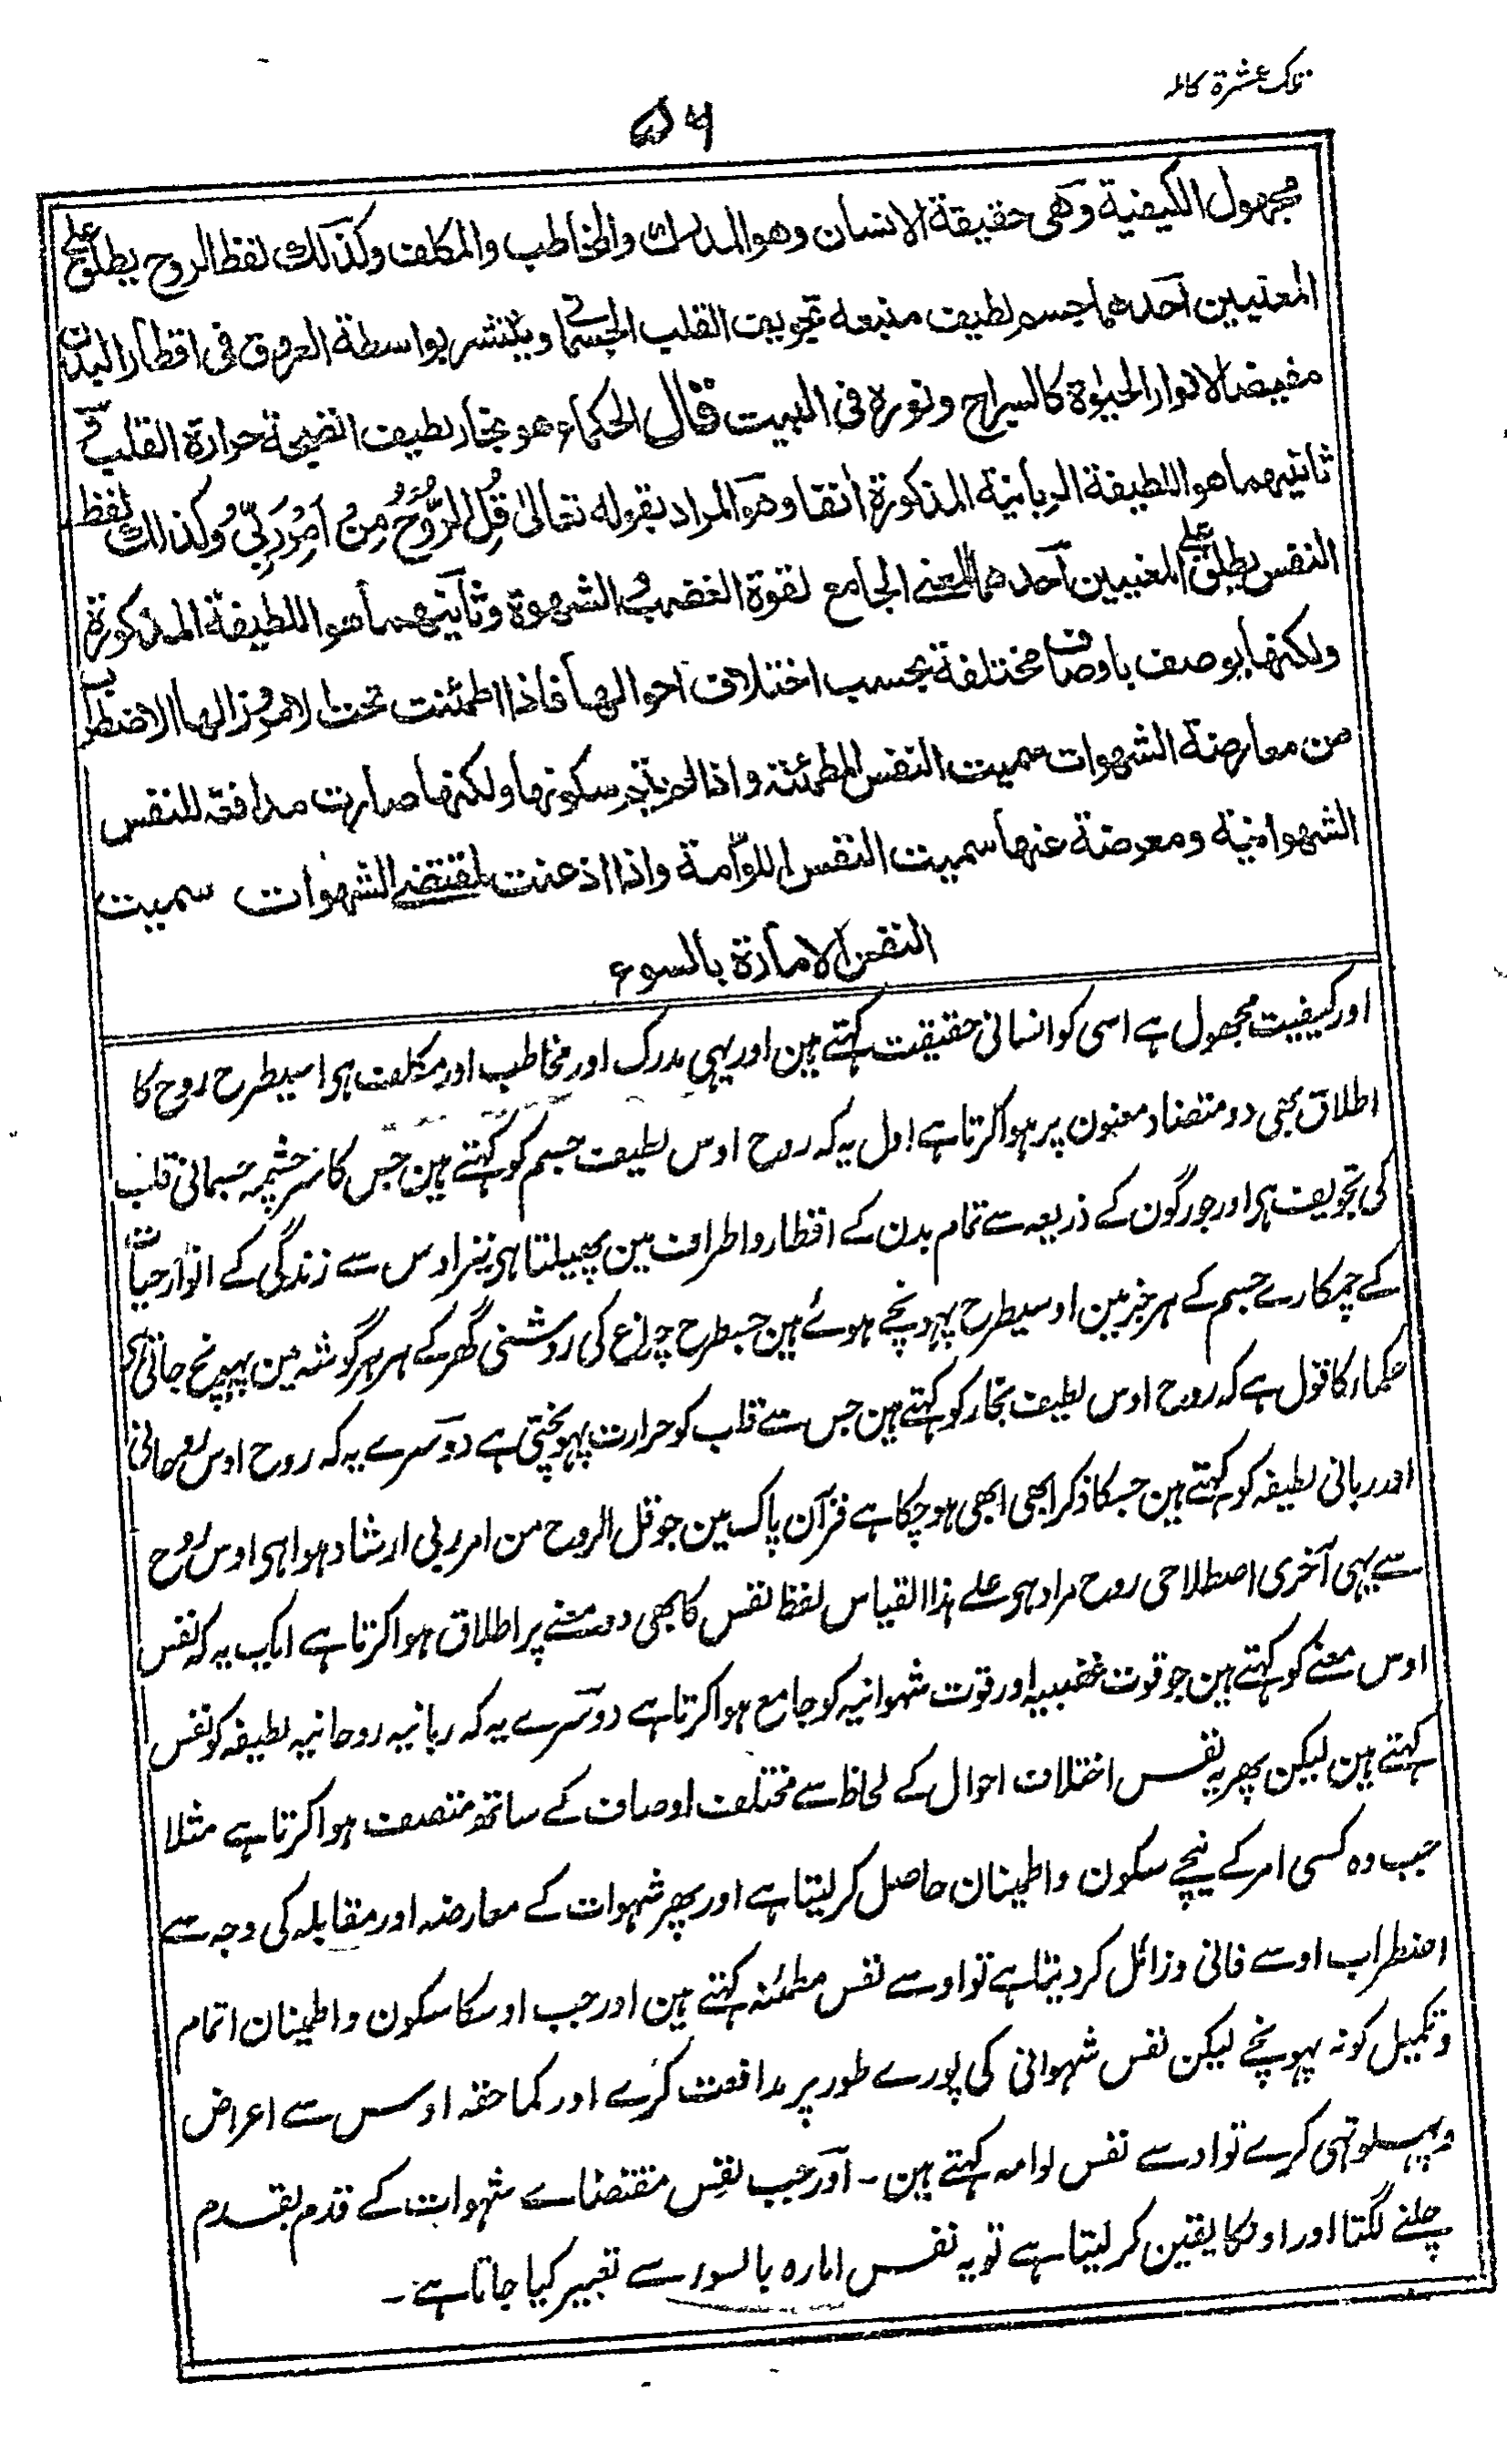 تلک عشرة کاملہ
۵۶
مجهول الكيفية وهى حقيقة الانسان وهو المدرك والمخاطب والمكلف وكذالك لفظ الروح يطلق على
المعنيين احدهما جسم لطيف منبعه تجويف القلب الجسمانى وينتشر بواسطة العروق فى اقطار البدن
مفيضا لانوار الحيوة كالسراج ونوره فى البيت فقال الحكماء هو بخار لطيف انضجته حرارة القلب و
ثانيهما هو اللطيفة الربانية المذكورة انفا وهو المراد بقوله تعالىٰ قُلِ الرُّوْحُ مِنْ اَمْرِ رَبِّيْ وكذالك لفظ
النفس يطلق على المعنيين احدهما المعنے الجامع لقوة الغضب و الشهوة وثانيهما هو اللطيفة المذكورة
ولكنها يوصف باوصاف مختلفة بحسب اختلاف احوالها فاذا اطمئنت تحت لامر وزالها الاضطراب
من معارضة الشهوات سميت النفس المطمئنة واذا لم يتم سكونها ولكنها صارت مدافعة للنفس
الشهوانية ومعرضة عنها سميت النفس اللوّامة واذا اذعنت لمقتضے الشهوات سميت
النفس الامارة بالسوء
اور کیفیت مجھول ہے اسی کو انسانی حقیقت کہتے ہین اور یہی مدرک اور مخاطب اور مکلف ہی اسیطرح روح کا
اطلاق بھی دو متضاد معنون پر ہوا کرتا ہے اول یہ کہ روح اوس لطیف جسم کو کہتے ہین جس کا سرچشمہ جسمانی قلب
کی تجویف ہی اور جو رگون کے ذریعہ سے تمام بدن کے اقطار واطراف مین پھیلتا ہی نیز اوس سے زندگی کے انوار حیات
کے چمکارے جسم کے ہر جز مین اوسیطرح پہونچے ہوئے ہین جسطرح چراغ کی روشنی گھر کے ہر ہر گوشہ مین پہونچ جاتی ہی
حکماء کا قول ہے کہ روح اوس لطیف بخار کو کہتے ہین جس سے قلب کو حرارت پہونچتی ہے دوسرے یہ کہ روح اوس روحانی
اور ربانی لطیفہ کو کہتے ہین جسکا ذکر ابھی ابھی ہو چکا ہے قرآن پاک مین جو قل الروح من امر ربی ارشاد ہوا ہی اوس روح
سے یہی آخری اصطلاحی روح مراد ہی علے ہذا القیاس لفظ نفس کا بھی دو معنے پر اطلاق ہوا کرتا ہے ایک یہ کہ نفس
اوس معنے کو کہتے ہین جو قوت غضبیہ اور قوت شہوانیہ کو جامع ہوا کرتا ہے دوسرے یہ کہ ربانیہ روحانیہ لطیفہ کو نفس
کہتے ہین لیکن پھر یہ نفس اختلاف احوال کے لحاظ سے مختلف اوصاف کے ساتھ متصف ہوا کرتا ہے مثلا
جب وہ کسی امر کے نیچے سکون واطمینان حاصل کر لیتا ہے اور پھر شہوات کے معارضہ اور مقابلہ کی وجہ سے
اضطراب اوسے فانی وزائل کر دیتا ہے تو اوسے نفس مطمئنہ کہتے ہین اور جب اوسکا سکون واطمینان اتمام
وتکمیل کو نہ پہونچے لیکن نفس شہوانی کی پورے طور پر مدافعت کرے اور کماحقہ اوس سے اعراض
وپہلو تہی کرے تو اوسے نفس لوامہ کہتے ہین ۔ اور جب نفس مقتضاے شہوات کے قدم بقدم
چلنے لگتا اور اونکا یقین کر لیتا ہے تو یہ نفس امارہ بالسوء سے تعبیر کیا جاتا ہے ۔